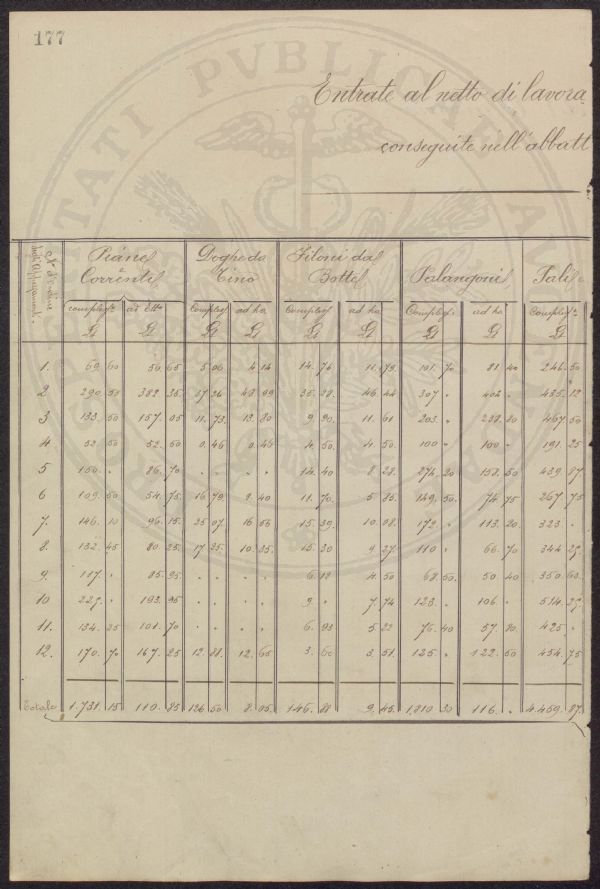 177
PVBLICAE
Entrate al netto di lavora
conseguite nell'abbatt
N. d'ordine
degli appezzamenti.
Piane Doghe da Filoni da Palangoni Pali
Correnti Tino Botte
compless. ad Ett. Compless. ad ha Compless. ad ha Compless. ad ha Compless.
£ £ £ £ £ £ £ £ £
1. 69. 60 50. 65 5. 06 4. 14 14. 76 11. 79. 101. 70 81. 40 246. 50
2 290. 50 382. 35. 17. 36 48. 99 35. 28. 46. 44 307 " 402 " 455. 12
3 133. 50 157. 05 11. 73. 13. 80 9. 90. 11. 61 203. " 238. 80 467. 50
4 52. 50 52. 50 0. 46 0. 46 4. 50. 4. 50. 100 " 100 " 191. 25
5 150. " 86. 70 . . . . 14. 40 8. 28. 274. 20 158. 50 439. 87
6 109. 50 54. 75 16. 79 8. 40 11. 70. 5. 85. 149. 50 74. 75 267. 75
7. 146. 10 96. 15. 25. 07 16. 56 15. 39. 10. 08. 172. " 113. 20 323. "
8. 132. 45 80. 25. 17. 25. 10. 35. 15. 30 9. 27. 110 " 66. 70 344. 27.
9. 117. " 85. 95. . . . . 6. 12 4. 50 68. 50. 50. 40 350. 63.
10 227. " 193. 95 . . . . 9. " 7. 74 123. " 106. " 514. 27.
11. 134. 25 101. 70 . . . . 6. 93 5. 22 76. 40 57. 80. 425. "
12. 170. 70 167. 25 12. 88. 12. 65 3. 60 3. 51. 125. " 122. 50 454. 75
Totale 1.731. 15 110. 85 126. 50 8. 05. 146. 88 9. 45. 1,810. 30 116. " 4.459. 87.